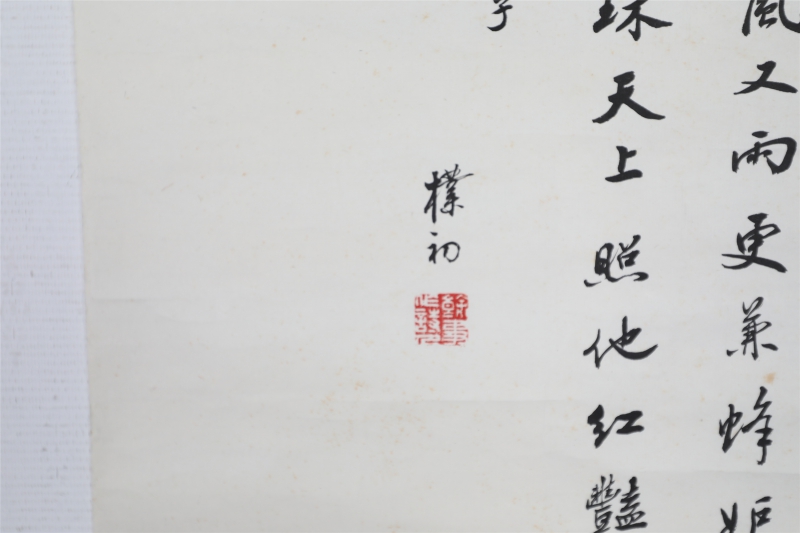 風又雨更兼蜂妒
珠天上照他紅豔
子
樸初